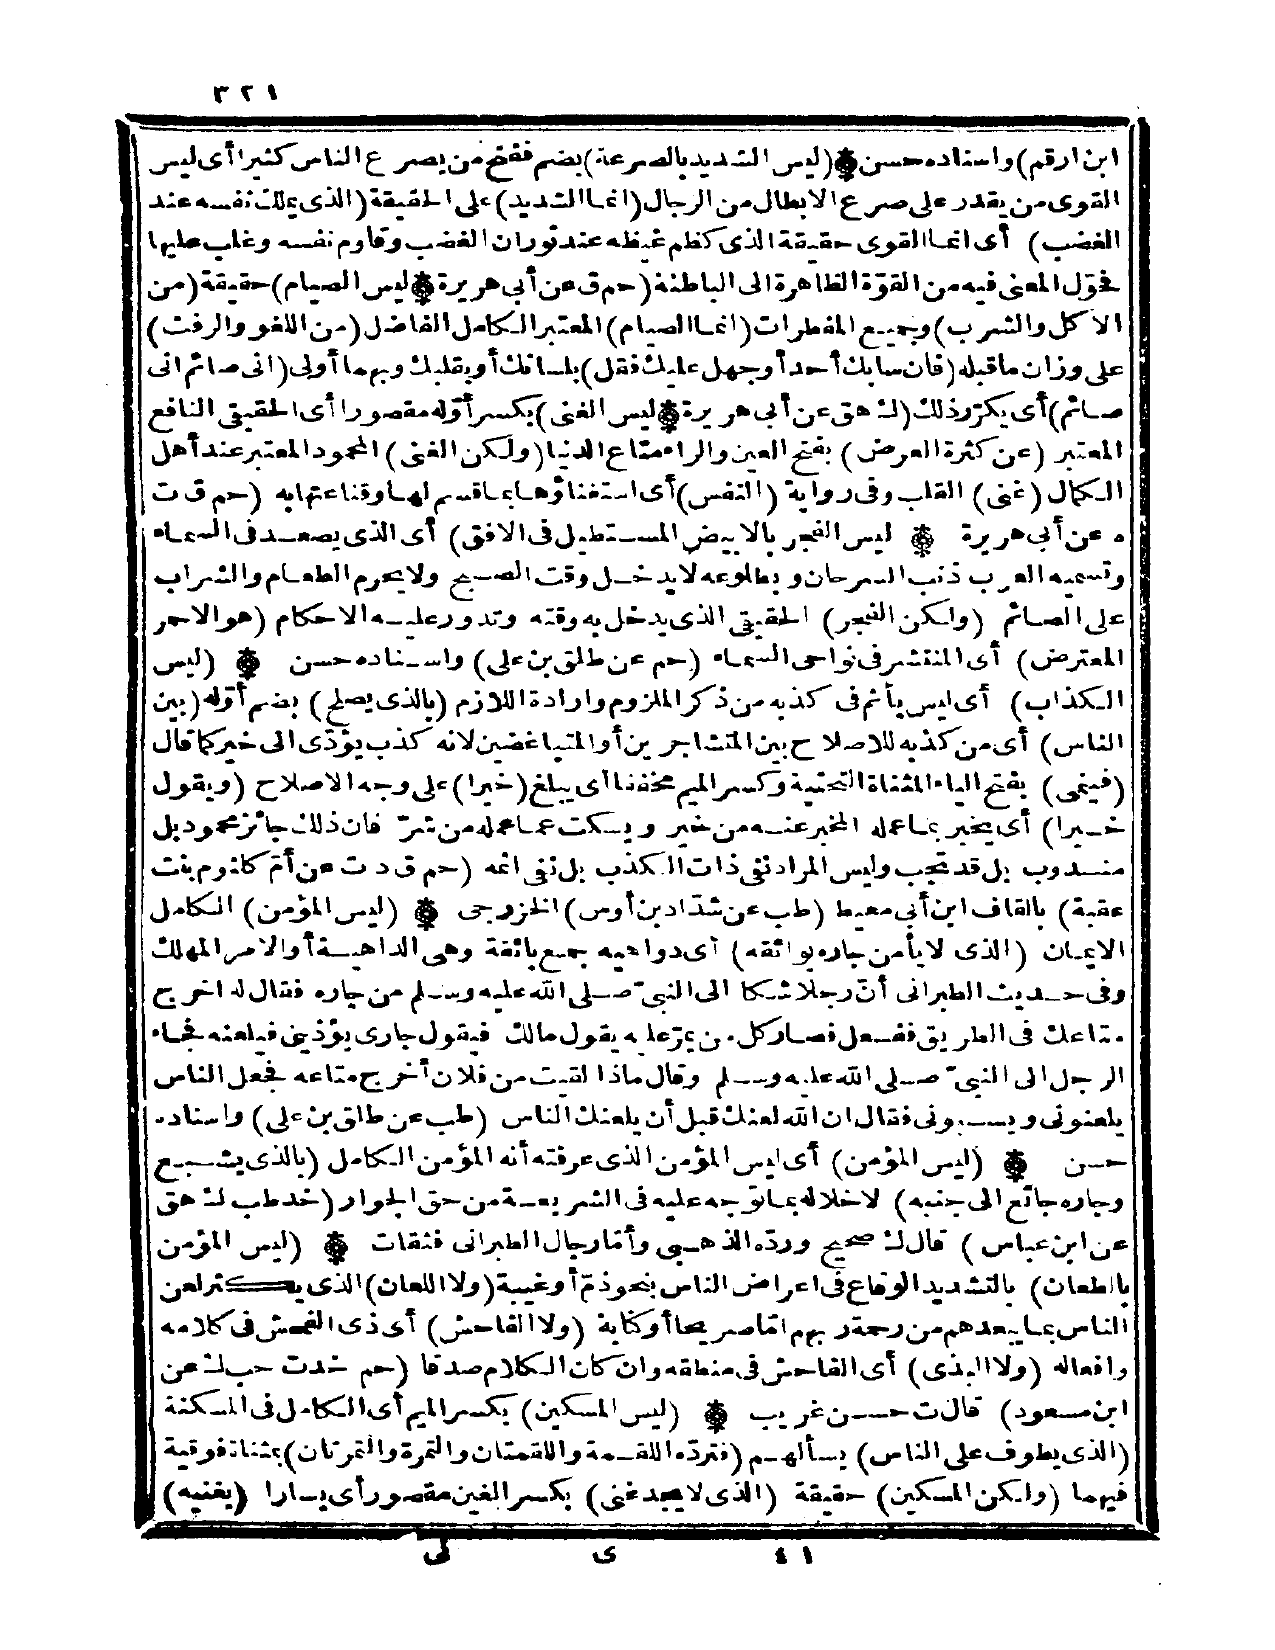 ٣٢١
ابن ارقم) واسناده حسن ۞ (ليس الشديد بالصرعة) بضم ففتح من يصرع الناس كثيرا أى ليس
القوى من يقدر على صرع الابطال من الرجال (انما الشديد) على الحقيقة (الذى يملك نفسه عند
الغضب) أى انما القوى حقيقة الذى كظم غيظه عند ثوران الغضب وقاوم نفسه وغلب عليها
فحوّل المعنى فيه من القوّة الظاهرة الى الباطنة (حم ق عن أبى هريرة ۞ ليس الصيام) حقيقة (من
الاكل والشرب) وجميع المفطرات (انما الصيام) المعتبر الكامل الفاضل (من اللغو والرفث)
على وزان ما قبله (فان سابك أحد أو جهل عليك فقل) بلسانك أو بقلبك وبهما أولى (انى صائم انى
صائم) أى يكرّر ذلك (ك هق عن أبى هريرة ۞ ليس الغنى) بكسر أوّله مقصورا أى الحقيقى النافع
المعتبر (عن كثرة العرض) بفتح العين والراء متاع الدنيا (ولكن الغنى) المحمود المعتبر عند أهل
الكمال (غنى) القلب وفى رواية (النفس) أى استغناؤها بما قسم لها وقناعتها به (حم ق ت
ه عن أبى هريرة ۞ ليس الفجر بالابيض المستطيل فى الافق) أى الذى يصعد فى السماء
وتسميه العرب ذنب السرحان وبطلوعه لا يدخل وقت الصبح ولا يحرم الطعام والشراب
على الصائم (ولكن الفجر) الحقيقى الذى يدخل به وقته وتدور عليه الاحكام (هو الاحمر
المعترض) أى المنتشر فى نواحى السماء (حم عن طلق بن على) واسناده حسن ۞ (ليس
الكذاب) أى ليس يأثم فى كذبه من ذكر الملزوم وارادة اللازم (بالذى يصلح) بضم أوّله (بين
الناس) أى من كذبه للاصلاح بين المتشاجرين أو المتباغضين لانه كذب يؤدّى الى خير كما قال
(فينمى) بفتح الياء المثناة التحتية وكسر الميم مخففا أى يبلغ (خيرا) على وجه الاصلاح (ويقول
خيرا) أى يخبر بما عمله المخبر عنه من خير ويسكت عما عمله من شرّ فان ذلك جائز محمود بل
مندوب بل قد يجب وليس المراد نفى ذات الكذب بل نفى اثمه (حم ق د ت عن أمّ كلثوم بنت
عقبة) بالقاف ابن أبى معيط (طب عن شدّاد بن أوس) الخزرجى ۞ (ليس المؤمن) الكامل
الايمان (الذى لا يأمن جاره بوائقه) أى دواهيه جمع بائقة وهى الداهية أو الامر المهلك
وفى حديث الطبرانى أنّ رجلا شكا الى النبىّ صلى الله عليه وسلم من جاره فقال له اخرج
متاعك فى الطريق ففعل فصار كل من يمرّ عليه يقول مالك فيقول جارى يؤذينى فيلعنه فجاء
الرجل الى النبىّ صلى الله عليه وسلم وقال ماذا لقيت من فلان أخرج متاعه فجعل الناس
يلعنونى ويسبونى فقال ان الله لعنك قبل أن يلعنك الناس (طب عن طلق بن على) واسناده
حسن ۞ (ليس المؤمن) أى ليس المؤمن الذى عرفته أنه المؤمن الكامل (بالذى يشبع
وجاره جائع الى جنبه) لاخلاله بما توجه عليه فى الشريعة من حق الجوار (خد طب ك هق
عن ابن عباس) قال ك صحيح وردّه الذهبى وأمّا رجال الطبرانى فثقات ۞ (ليس المؤمن
بالطعان) بالتشديد الوقاع فى اعراض الناس بنحو ذمّ أو غيبة (ولا اللعان) الذى يكثر لعن
الناس بما يبعدهم من رحمة ربهم امّا صريحا أو كناية (ولا الفاحش) أى ذى الفحش فى كلامه
وافعاله (ولا البذى) أى الفاحش فى منطقه وان كان الكلام صدقا (حم خد ت حب ك عن
ابن مسعود) قال ت حسن غريب ۞ (ليس المسكين) بكسر الميم أى الكامل فى المسكنة
(الذى يطوف على الناس) يسألهم (فتردّه اللقمة واللقمتان والتمرة والتمرتان) بمثناة فوقية
فيهما (ولكن المسكين) حقيقة (الذى لا يجد غنى) بكسر الغين مقصور أى يسارا (يغنيه)
٤١ ى لى